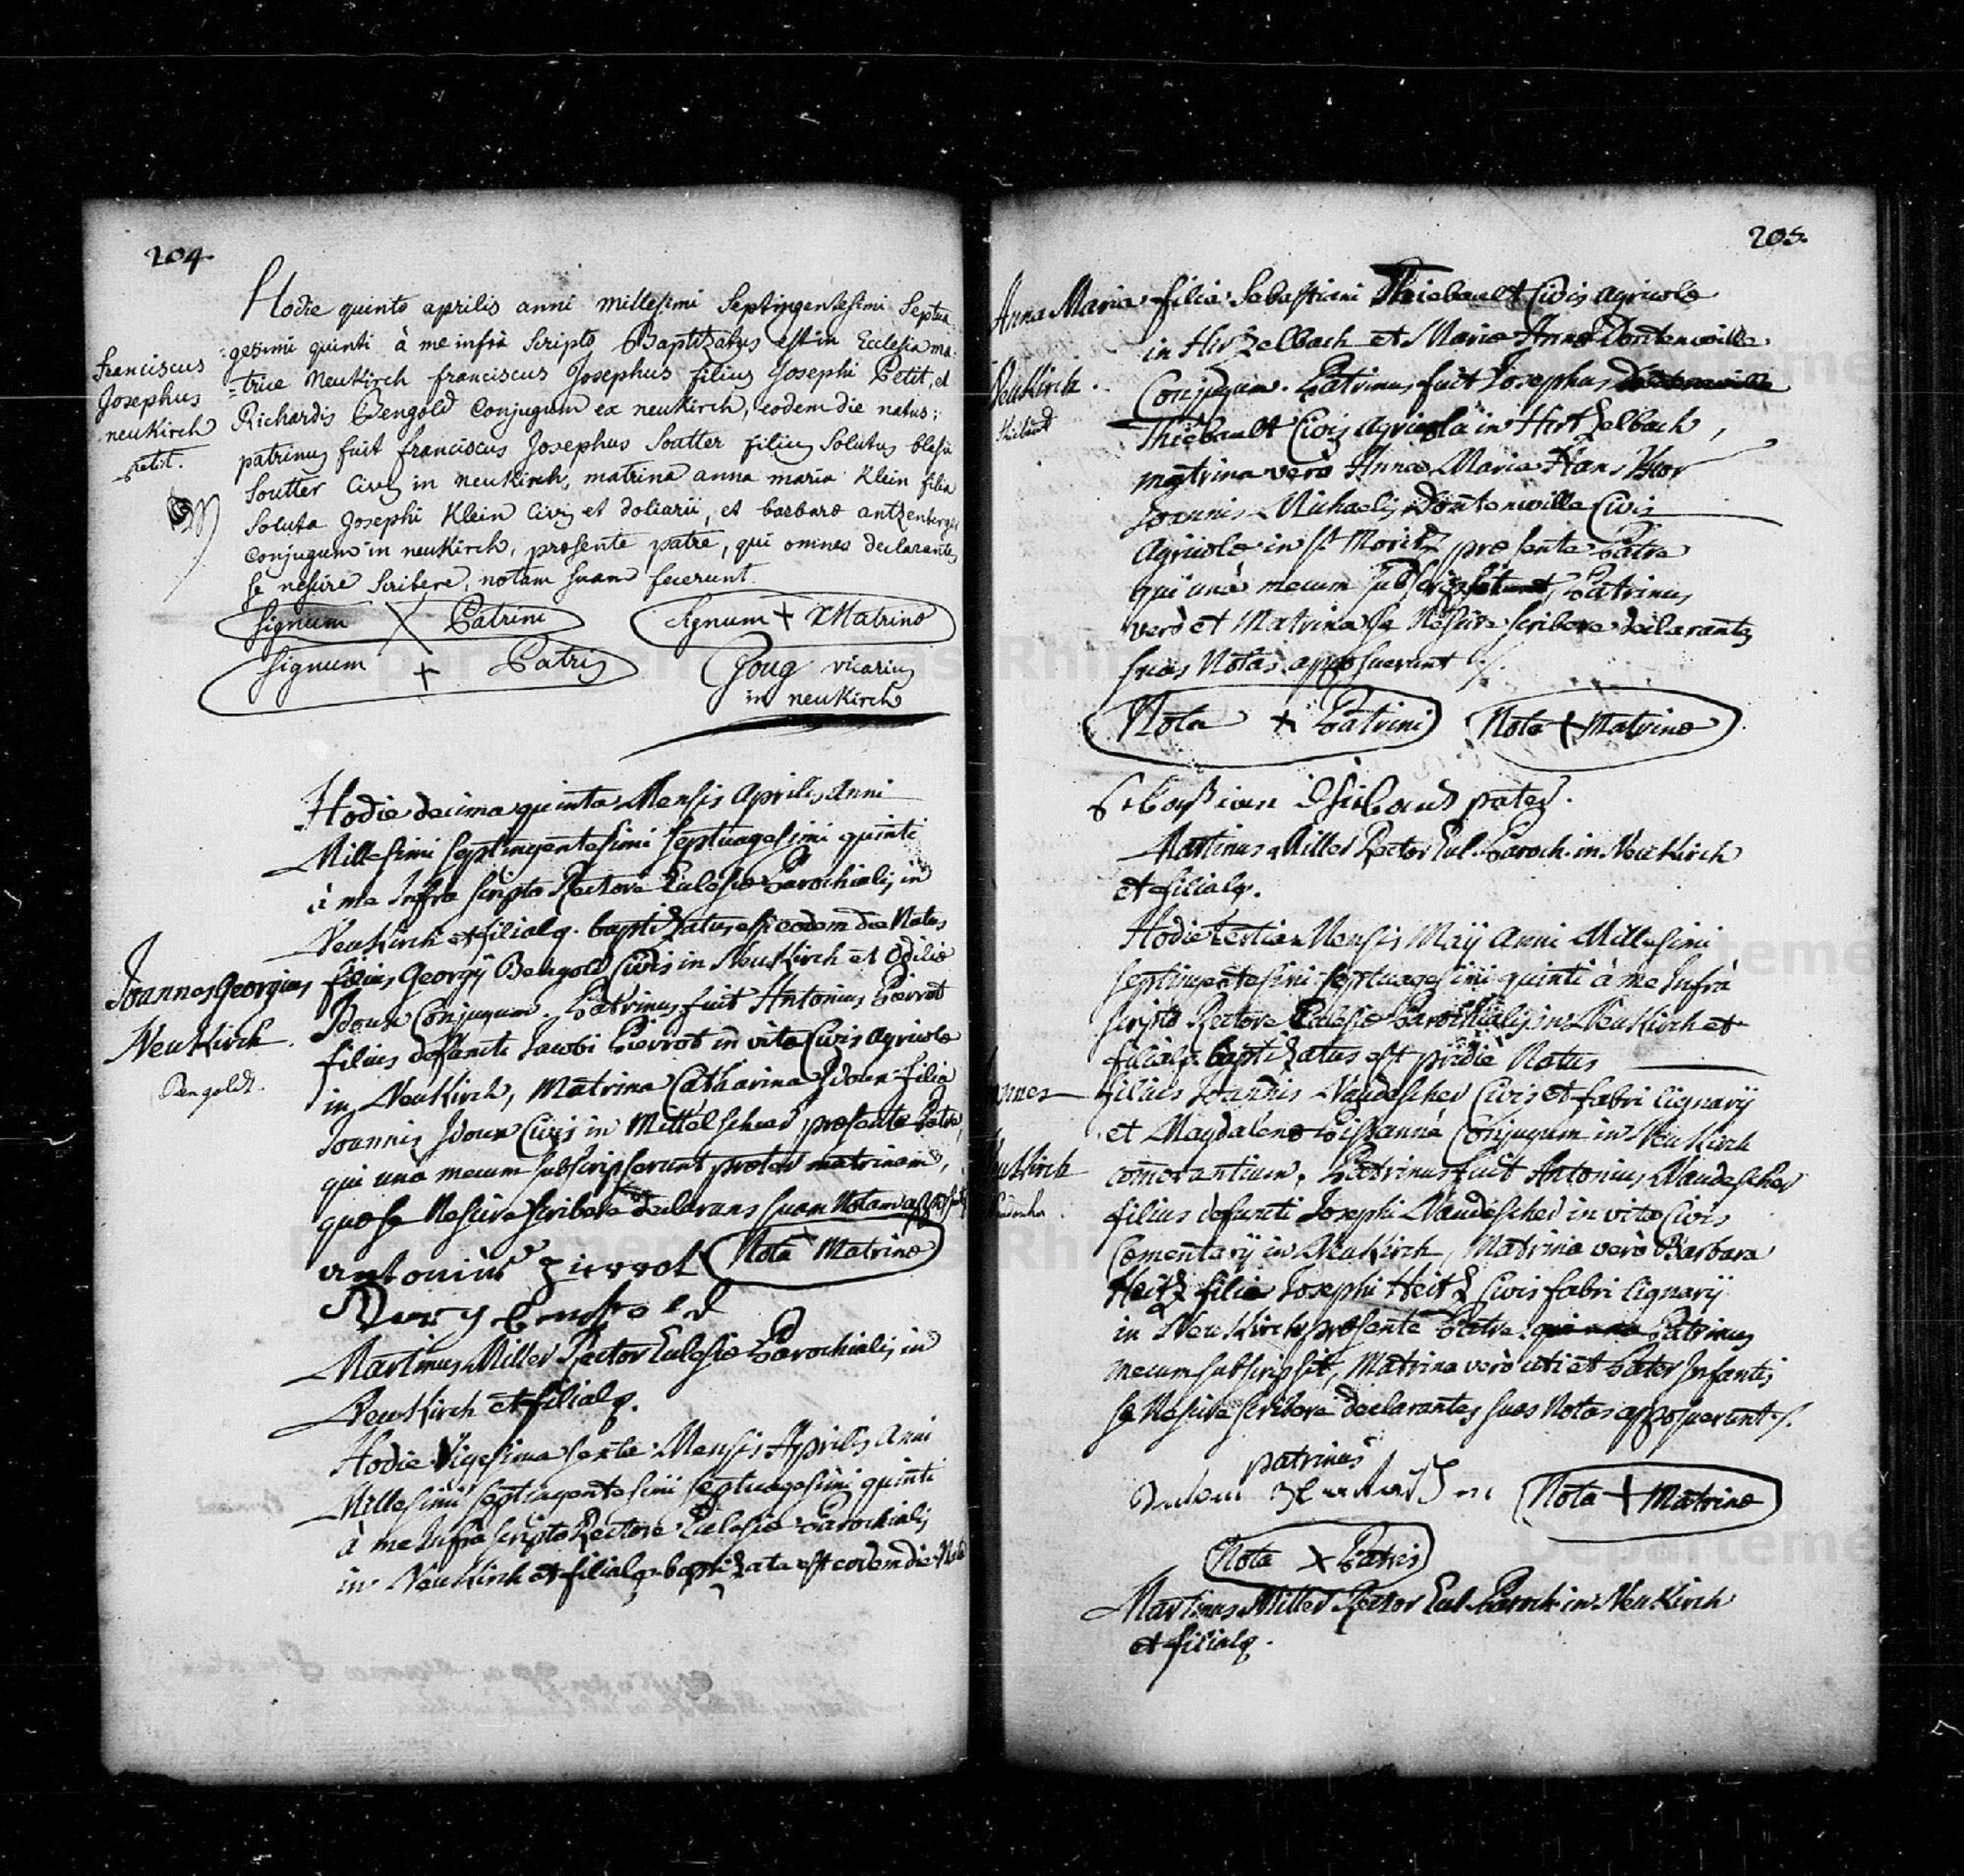 204.
Hodie quinto aprilis anni millesimi Septingentesimi Septua
Franciscus
Josephus
neukirch
petit.
=gesimi quinti à me infrà Scripto Baptizatus est in Ecclesia ma=
=trice neukirch franciscus Josephus filius Josephi Petit, et
Richardis Bengold Conjugum ex neukirch, eodem die natus;
patrinus fuit franciscus Josephus Soutter filius Solutus blasii
Soutter Civis in neukirch, matrina anna maria Klein filia
Soluta Josephi Klein Civis et doliarii, et barbaræ antzenberger
Conjugum in neukirch, præsente patre, qui omnes declarantes
se nescire Scribere, notam suam fecerunt.
Signum X Patrini Signum + Matrinæ
Signum + Patris Goug vicarius
in neukirch
Hodie decima quinta Mensis Aprilis Anni
Millesimi septingentesimi septuagesimi quinti
à me Infra scripto Rectore Eclesiæ Parochialis in
Neukirch et filialq. baptizatus est eodem die Natus
Joannes Georgius
Neukirch.
Bengoldt.
filius Georgÿ Bengold Civis in Neukirch et Odiliæ
Idoux Conjugum. Patrinus fuit Antonius Pierrot
filius defuncti Jacobi Pierrot in vita Civis Agricolæ
in Neukirch, Matrina Catharina Idoux filia
Joannis Idoux Civis in Mittelscher præsente Patre,
qui una mecum subscripserunt præter matrinam,
quæ se Nescire scribere declarans suam Notam
antonius Pierrot Nota + Matrinæ
Martinus Miller Rector Eclesiæ Parochialis in
Neukirch et filialq.
Hodie Vigesima sexta Mensis Aprilis Anni
Millesimi septingentesimi septuagesimi quinti
à me Infra scripto Rectore Eclesiæ Parochialis
in Neukirch et filialq. baptizata est eodem die Nata
205.
Anna Maria
Neukirch.
filia Sebastiani Thiebault Civis Agricolæ
in Hirtzelbach et Mariæ Annæ Dontenwille
Conjugum. Patrinus fuit Josephus
Thiebault Civis Agricola in Hirtzelbach,
matrina verò Anna Maria Hans Uxor
Joannis Michaelis Dontenwille Civis
Agricolæ in St Moritz præsente Patre
qui unà mecum, Patrinus
verò et Matrina se Nescire scribere declarantes
suas Notas apposuerunt ./.
Nota + Patrini Nota + Matrinæ
Sebastian Thiebaud pater.
Martinus Miller Rector Ecl. Paroch. in Neukirch
et filialq.
Hodie tertia Mensis Maÿ Anni Millesimi
septingentesimi septuagesimi quinti à me Infrà
scripto Rectore Eclesiæ Parochialis in Neukirch et
filialq. baptizatus est pridiè Natus
filius Joannis Naudescher Civis et fabri lignarÿ
et Magdalenæ Conjugum in Neukirch
comorantium. Patrinus fuit Antonius Naudescher
filius defuncti Josephi Naudescher in vita Civis
Cementarÿ in Neukirch, Matrina verò Barbara
Heitz filia Josephi Heitz Civis fabri lignarÿ
in Neukirch præsente Patre. Patrinus
mecum subscripsit, Matrina verò uti et Pater Infantis
se Nescire scribere declarantes suas Notas apposuerunt ./.
patrinus
Nota + Matrinæ
Nota X Patris
Martinus Miller Rector Ecl. Paroch. in Neukirch
et filialq.